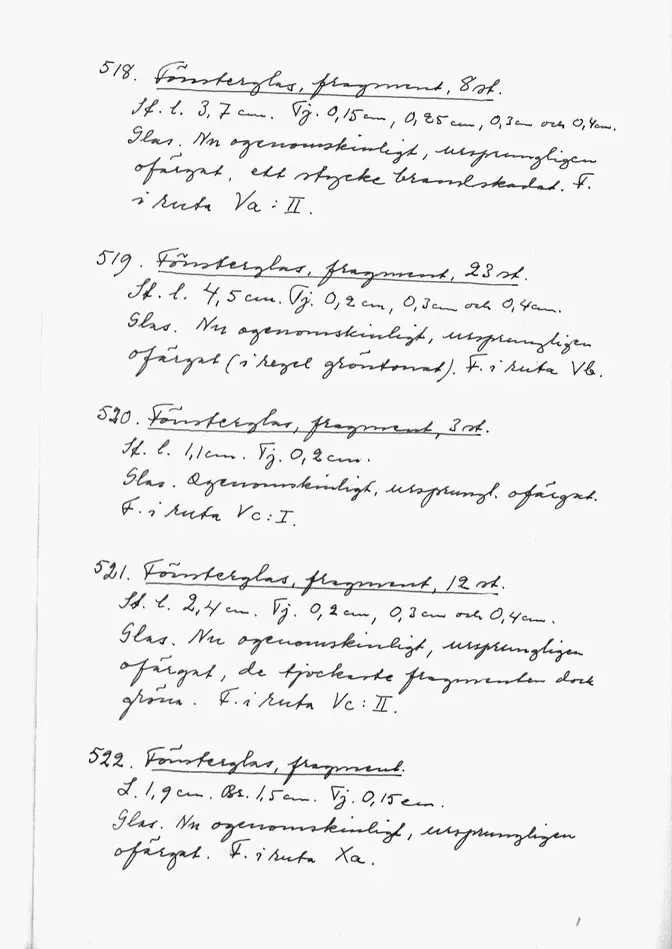 518. Fönsterglas, fragment, 8 st.
St. l. 3,7 cm. Tj. 0,15 cm, 0,25 cm, 0,3 cm och 0,4 cm.
Glas. Nu ogenomskinligt, ursprungligen
ofärgat, ett stycke brandskadat. F.
i ruta Va : II.
519. Fönsterglas, fragment, 23 st.
St. l. 4,5 cm. Tj. 0,2 cm, 0,3 cm och 0,4 cm.
Glas. Nu ogenomskinligt, ursprungligen
ofärgat (i regel gröntonat). F. i ruta Vb.
520. Fönsterglas, fragment, 3 st.
St. l. 1,1 cm. Tj. 0,2 cm.
Glas. Ogenomskinligt, ursprungl. ofärgat.
F. i ruta Vc : I.
521. Fönsterglas, fragment, 12 st.
St. l. 2,4 cm. Tj. 0,2 cm, 0,3 cm och 0,4 cm.
Glas. Nu ogenomskinligt, ursprungligen
ofärgat, de tjockaste fragmenten dock
gröna. F. i ruta Vc : II.
522. Fönsterglas, fragment.
L. 1,9 cm. Br. 1,5 cm. Tj. 0,15 cm.
Glas. Nu ogenomskinligt, ursprungligen
ofärgat. F. i ruta Xa.